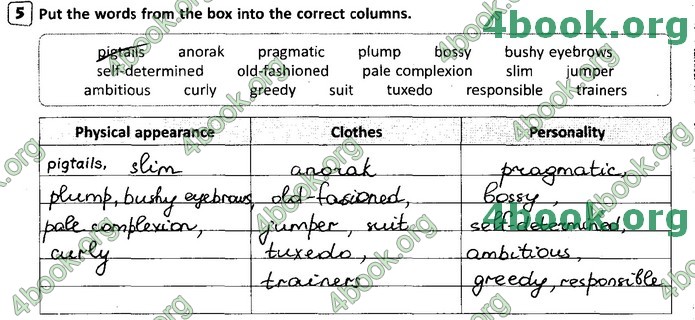 5 Put the words from the box into the correct columns.
4book.org
pigtails anorak pragmatic plump bossy bushy eyebrows
self-determined old-fashioned pale complexion slim jumper
ambitious curly greedy suit tuxedo responsible trainers
Physical appearance Clothes Personality
pigtails, slim anorak pragmatic,
plump, bushy eyebrows, old-fasioned, bossy,
pale complexion, jumper, suit self-determined,
curly tuxedo, ambitious,
trainers greedy, responsible
4book.org